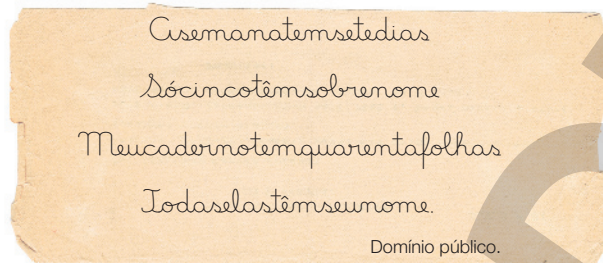 Asemanatemsetedias
Sócincotêmsobrenome
Meucadernotemquarentafolhas
Todaselastêmseunome.
Domínio público.